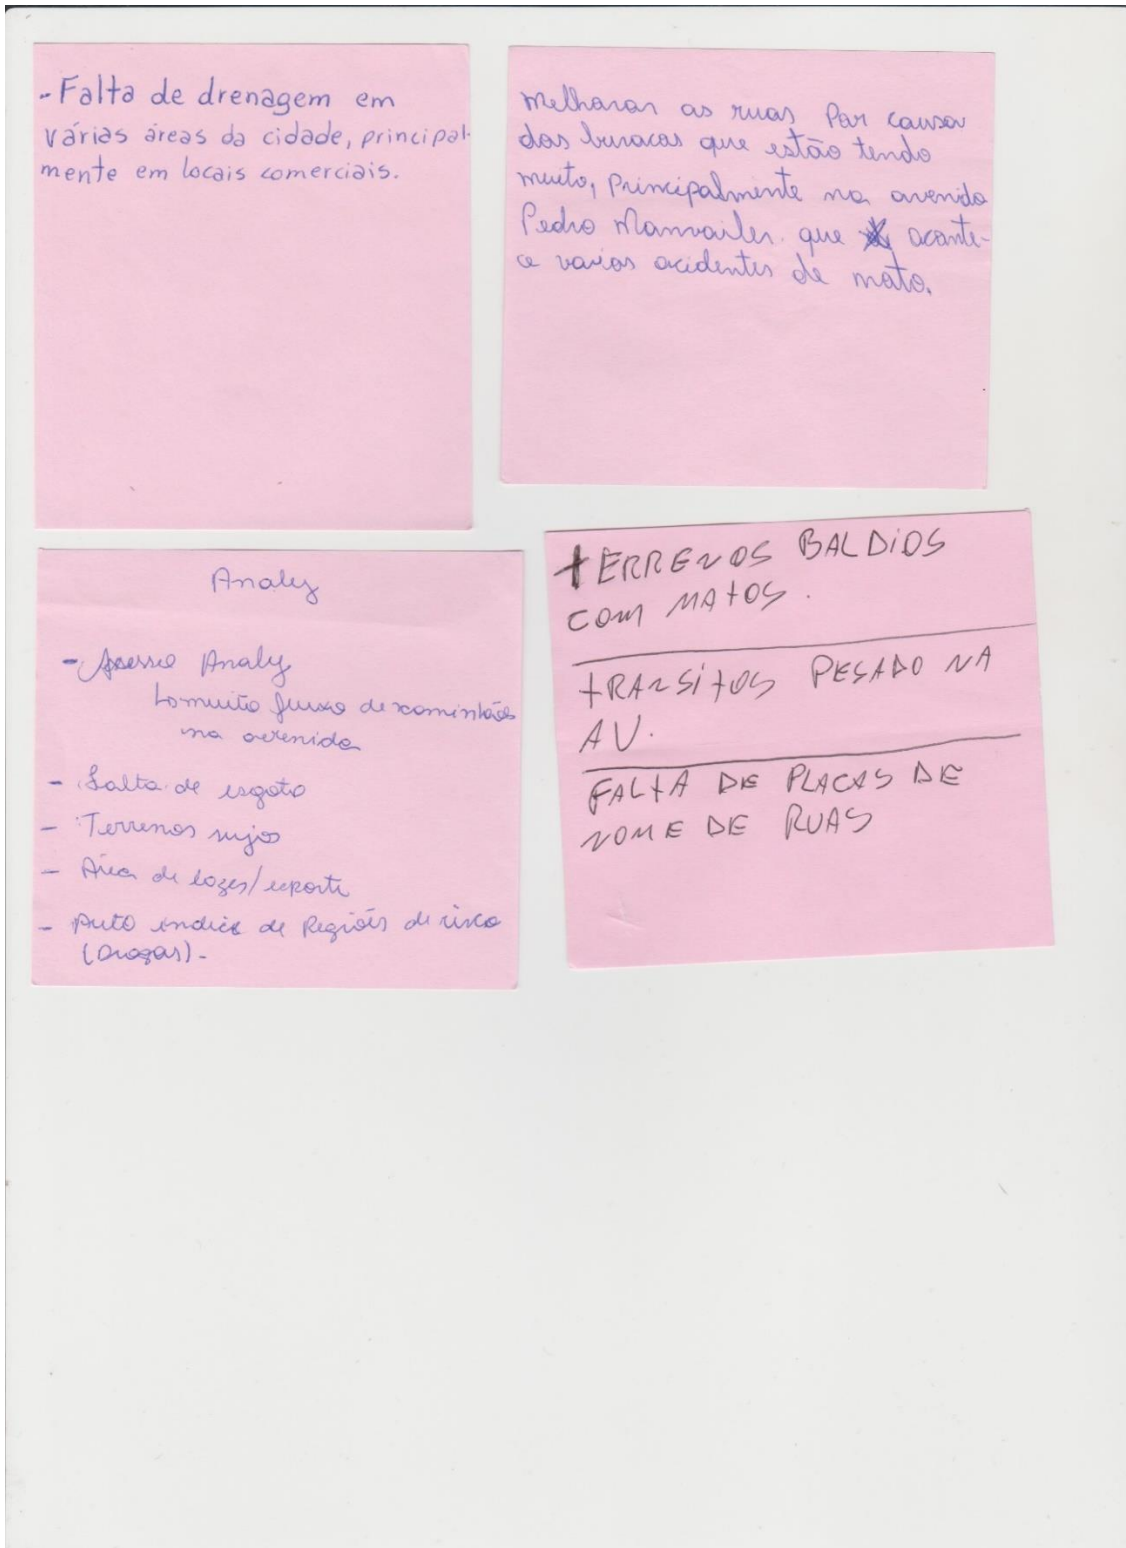 - Falta de drenagem em
várias áreas da cidade, principal-
mente em locais comerciais.
Melharar as ruas Por causa
dos buracos que estão tendo
muito, Principalmente na avenida
Pedro Manvailer que aconte-
ce varios acidentes de moto.
Analy
- Acesso Analy
muito fluxo de caminhões
na avenida
- Falta de esgoto
- Terrenos sujos
- Área de lazer/esporte
- Auto indice de Regiões de risco
(Drogas).
TERRENOS BALDIOS
COM MATOS.
TRANSITOS PESADO NA
AV.
FALTA DE PLACAS DE
NOME DE RUAS